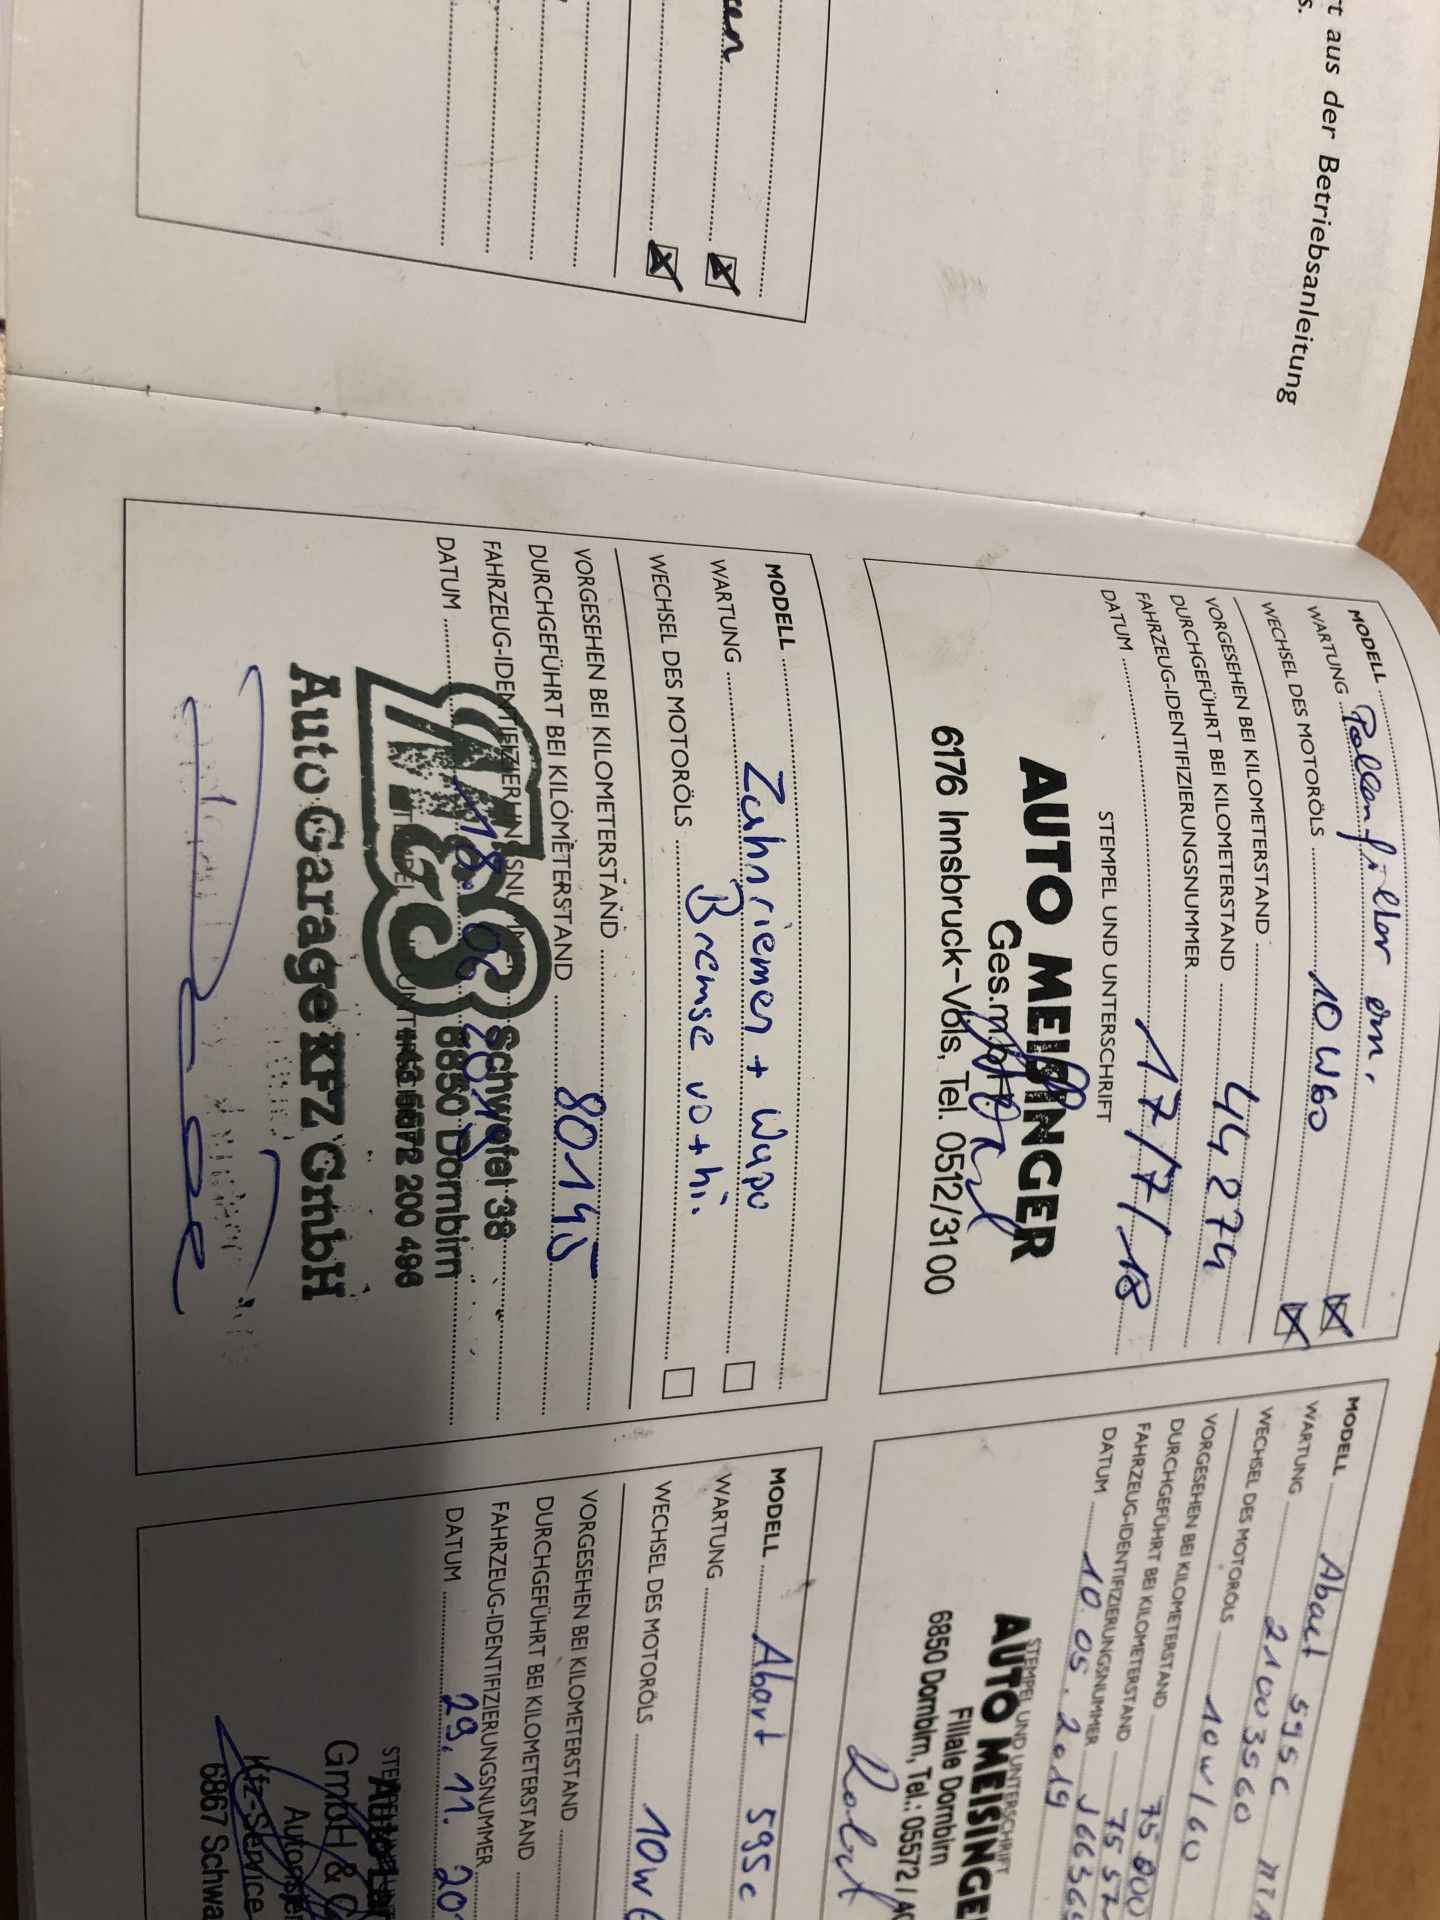 rt aus der Betriebsanleitung
s.
MODELL
WARTUNG Pollenfilter ern.
WECHSEL DES MOTORÖLS 10W60
VORGESEHEN BEI KILOMETERSTAND
DURCHGEFÜHRT BEI KILOMETERSTAND 44274
FAHRZEUG-IDENTIFIZIERUNGSNUMMER
DATUM 17/7/18
STEMPEL UND UNTERSCHRIFT
AUTO MEISINGER
Ges.mbH
6176 Innsbruck-Völs, Tel. 0512/3100
MODELL Abart 595c
WARTUNG
WECHSEL DES MOTORÖLS 10W/60
VORGESEHEN BEI KILOMETERSTAND
DURCHGEFÜHRT BEI KILOMETERSTAND
FAHRZEUG-IDENTIFIZIERUNGSNUMMER
DATUM 10.05.2019
STEMPEL UND UNTERSCHRIFT
AUTO MEISINGE
Filiale Dornbirn
6850 Dornbirn, Tel.: 05572 /
MODELL
WARTUNG Zahnriemen + Wapu
Bremse vo + hi.
WECHSEL DES MOTORÖLS
VORGESEHEN BEI KILOMETERSTAND
DURCHGEFÜHRT BEI KILOMETERSTAND 80145
FAHRZEUG-IDENTIFIZIERUNGSNUMMER
DATUM
Schwefel 38
6850 Dornbirn
5572 200 496
Auto Garage KFZ GmbH
MODELL Abart 595c
WARTUNG
WECHSEL DES MOTORÖLS 10W
VORGESEHEN BEI KILOMETERSTAND
DURCHGEFÜHRT BEI KILOMETERSTAND
FAHRZEUG-IDENTIFIZIERUNGSNUMMER
DATUM 29.11.20
GmbH &
Kfz-Service
6867 Schwa